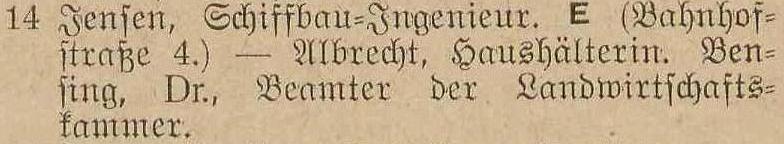 14 Jensen, Schiffbau-Ingenieur. E (Bahnhof-
straße 4.) — Albrecht, Haushälterin. Ben-
sing, Dr., Beamter der Landwirtschafts-
kammer.